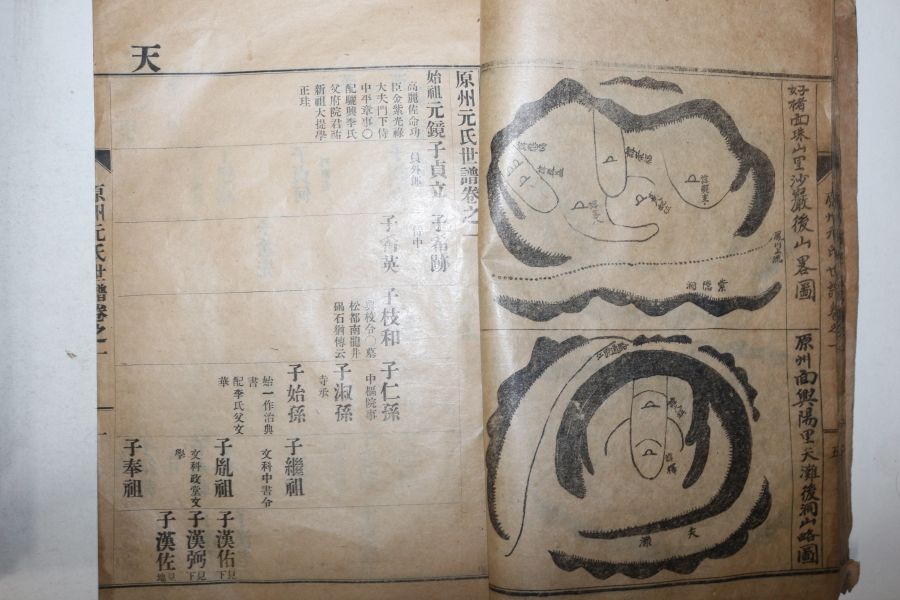 好猪面珠山里沙嚴後山畧圖
紫隱洞
原州面興陽里天灘後洞山略圖
天
原州元氏世譜卷之一
始祖元鏡
高麗佐命功
臣金紫光祿
大夫門下侍
中平章事〇
配驪興李氏
父府院君祐
新祖大提學
正珪
子貞立
員外郎
子希跡
侍中
子香英
子枝和
松都南龍井
碣石猶傳云
子仁孫
中樞院事
子淑孫
寺丞
子始孫
始一作治典
書
配李氏父文
華
子繼祖
文科中書令
子胤祖
文科政堂文
學
子奉祖
子漢佑
見下
子漢弼
見下
子漢佐
見地
原州元氏世譜卷之一
一